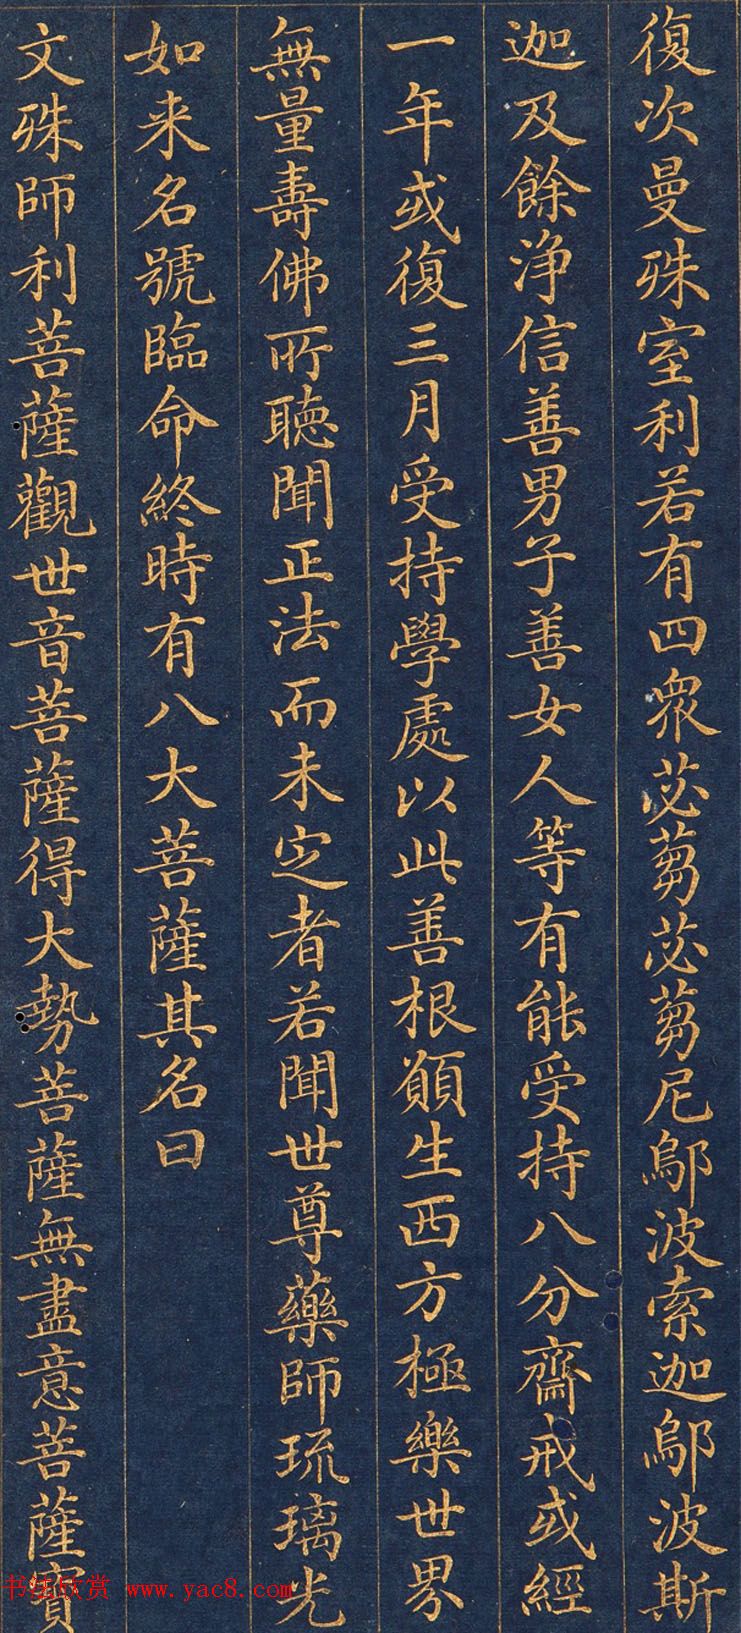 復次曼殊室利若有四衆苾蒭苾蒭尼鄔波索迦鄔波斯
迦及餘淨信善男子善女人等有能受持八分齋戒或經
一年或復三月受持學處以此善根願生西方極樂世界
無量壽佛所聽聞正法而未定者若聞世尊藥師琉璃光
如来名號臨命終時有八大菩薩其名曰
文殊師利菩薩觀世音菩薩得大勢菩薩無盡意菩薩寳
书法欣赏 www.yac8.com